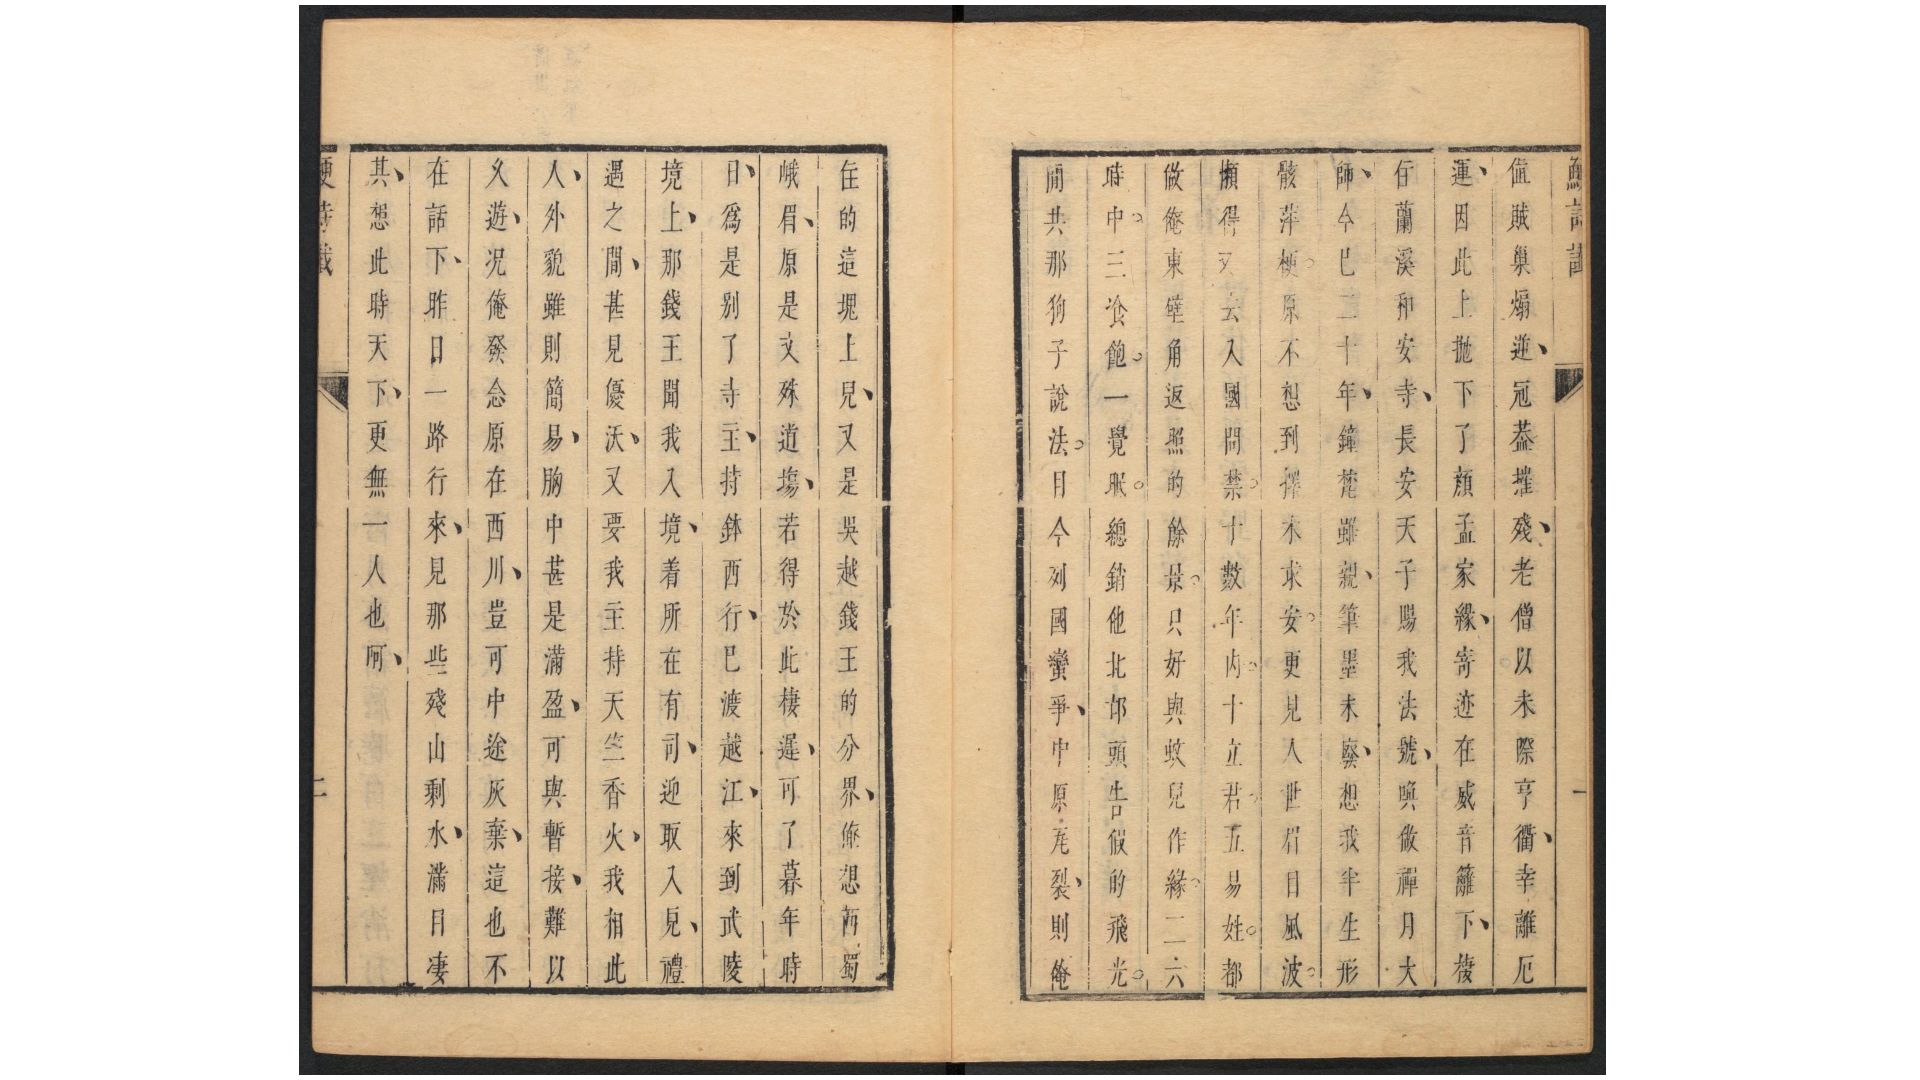 鯁詩讖 一
值賊巢煽逆冠葢摧殘老僧以未際亨衢幸離厄
運因此上拋下了顏孟家緣寄迹在威音籬下
蘭溪和安寺長安天子賜我法號喚做禪月大
師今巳二十年鐘梵雖親筆墨未廢想我半生形
骸萍梗原不想到擇木求安更見人世眉目風波
懶得又去入國問禁十數年內十立君五易姓都
做俺東壁角返照的餘景只好與蚊兒作緣二六
時中三飡飽一覺眠總銷他北邙頭告假的飛光
閒共那狗子說法目今列國蠻爭中原瓦裂則俺
住的這塊上兒又是吳越錢王的分界俺想西蜀
峨眉原是文殊道塲若得於此棲遲可了暮年時
日爲是别了寺主持鉢西行巳渡越江來到武陵
境上那錢王聞我入境着所在有司迎取入見禮
遇之間甚見優沃又要我主持天竺香火我相此
人外貌雖則簡易胸中甚是滿盈可與暫接難以
久遊况俺發念原在西川豈可中途灰棄這也不
在話下昨日一路行來見那些殘山剩水滿目凄
其想此時天下更無一人也呵
鯁詩讖 二